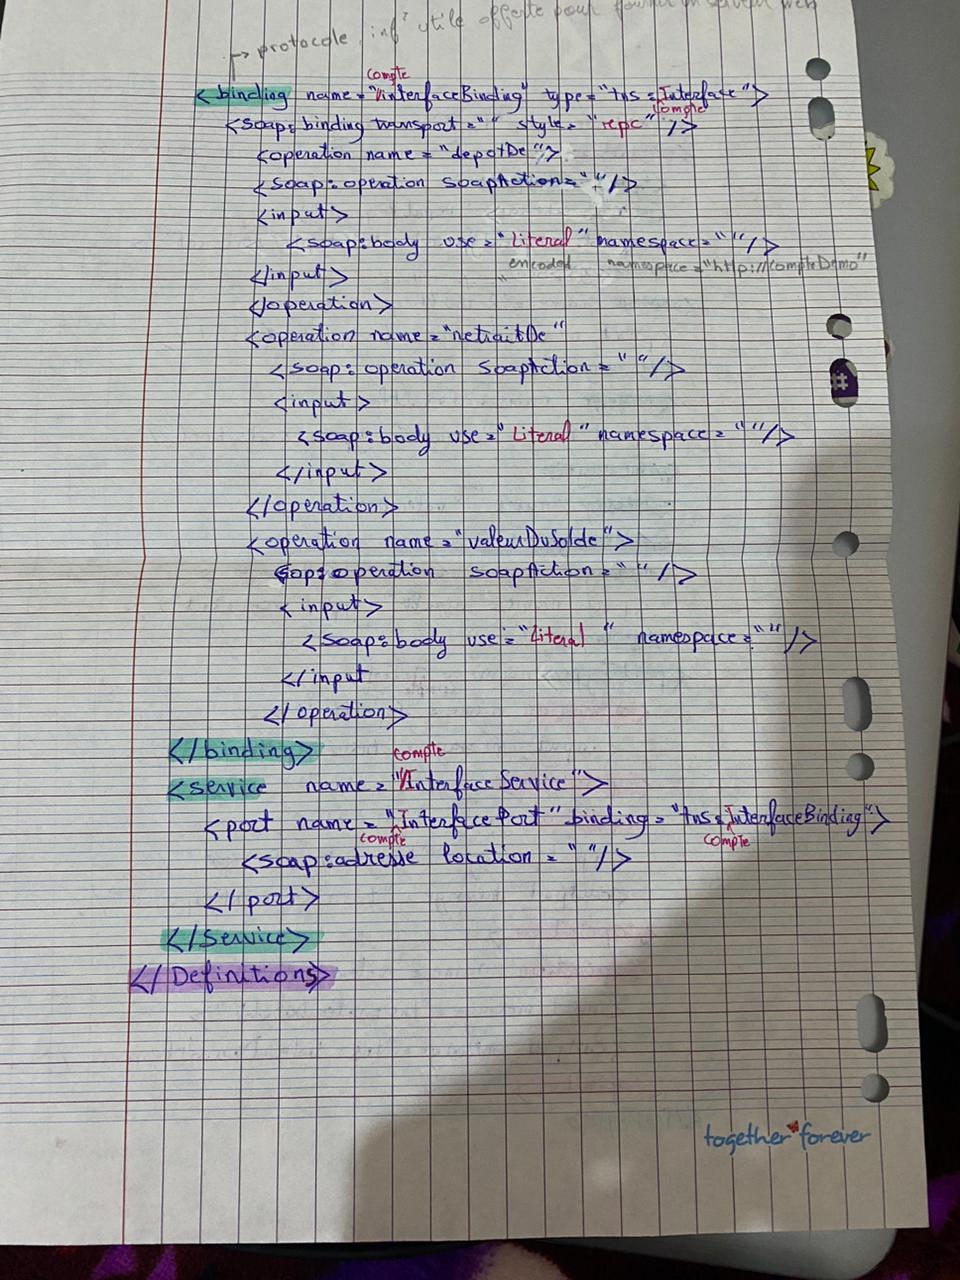 → protocole, inf° utile offerte pour fournir un serveur web
compte
<binding name="InterfaceBinding" type="tns:Interface">
compte
<soap:binding transport="" style="repc"/>
<operation name="depotDe"/>
<soap:operation soapAction=""/>
<input>
<soap:body use="Literal" namespace=""/>
encoded namespace="http://compteDemo"
</input>
</operation>
<operation name="retraitDe"
<soap:operation soapAction=""/>
<input>
<soap:body use="Literal" namespace=""/>
</input>
</operation>
<operation name="valeurDuSolde">
<soap:operation soapAction=""/>
<input>
<soap:body use="Literal" namespace=""/>
</input
</operation>
</binding>
compte
<service name="InterfaceService">
<port name="InterfacePort" binding="tns:InterfaceBinding">
compte compte
<soap:adresse location=""/>
</port>
</Service>
</Definitions>
together forever